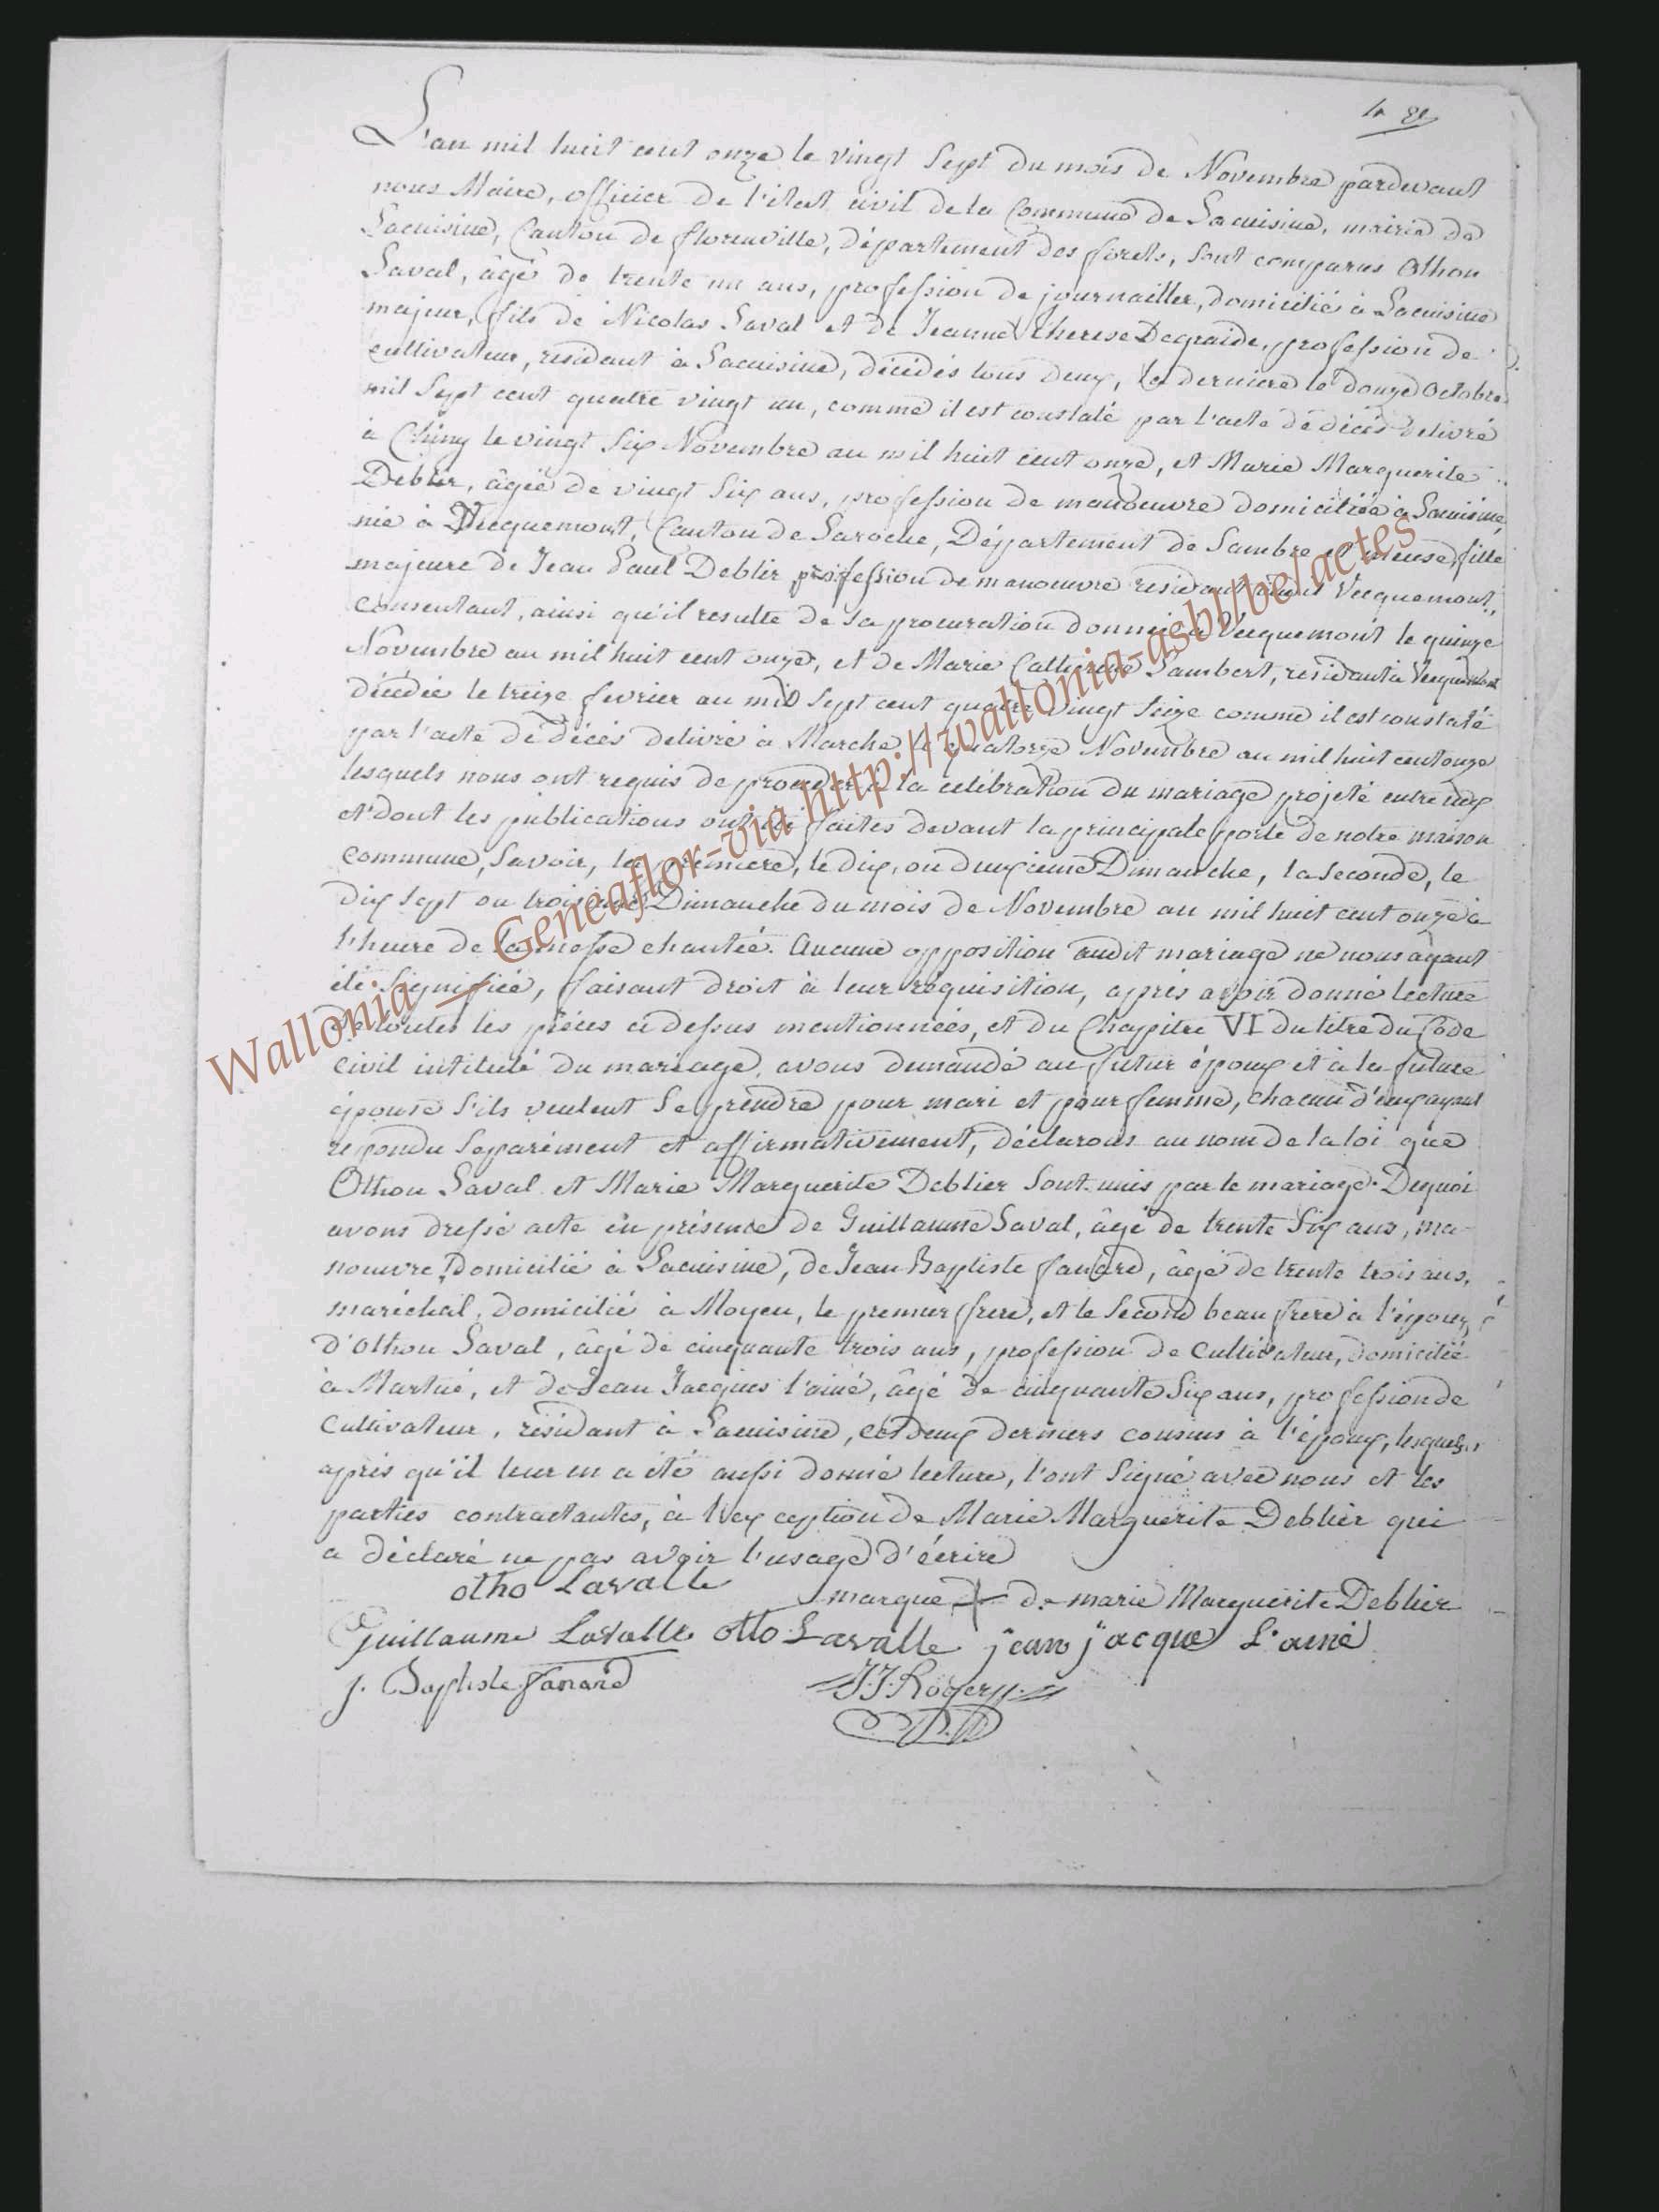 L'an mil huit cent onze le vingt sept du mois de Novembre pardevant
nous Maire, officier de l'état civil de la Commune de Lacuisine, mairie de
Lacuisine, Canton de florenville, département des forêts, sont comparus Othon
Laval, âgé de trente un ans, profession de journaillier, domicilié à Lacuisine
majeur, fils de Nicolas Laval et de Jeanne therese Degraide, profession de
cultivateur, residant à Lacuisine, décédés tous deux, la derniere le douze Octobre
mil sept cent quatre vingt un, comme il est constaté par l'acte de décès delivré
à Chiny le vingt six Novembre an mil huit cent onze, et Marie Marguerite
Deblier, âgée de vingt six ans, profession de manoeuvre domiciliée à Lacuisine,
née à Vecquemont, Canton de Laroche, Département de Sambre et meuse, fille
majeure de Jean Paul Deblier profession de manoeuvre residant Vecquemont,
consentant, ainsi qu'il resulte de sa procuration donnée à Vecquemont le quinze
Novembre an mil huit cent onze, et de Marie Catherine Lambert, residant à Vecquemont
décédée le treize fevrier an mil sept cent quatre vingt seize comme il est constaté
par l'acte de décès delivré à Marche le quatorze Novembre an mil huit cent onze
lesquels nous ont requis de proceder à la célébration du mariage projeté entre eux
et dont les publications ont été faites devant la principale porte de notre maison
commune, savoir, la premiere, le dix, ou deuxieme Dimanche, la seconde, le
dix sept ou troisieme Dimanche du mois de Novembre an mil huit cent onze à
l'heure de la messe chantée. Aucune opposition audit mariage ne nous ayant
été signifiée, faisant droit à leur réquisition, après avoir donné lecture
de toutes les piéces ci dessus mentionnées, et du Chapitre VI du titre du Code
civil intitulé du mariage, avons demandé au futur époux et à la future
épouse s'ils veulent se prendre pour mari et pour femme, chacun d'eux ayant
repondu separément et affirmativement, déclarons au nom de la loi que
Othon Laval et Marie Marguerite Deblier sont unis par le mariage. De quoi
avons dressé acte en présence de Guillaume Laval, âgé de trente six ans, ma-
noeuvre, domicilié à Lacuisine, de Jean Baptiste fanard, âgé de trente trois ans,
maréchal, domicilié à Moyen, le premier frere, et le second beau frere à l'époux,
d'Othon Laval, âgé de cinquante trois ans, profession de Cultivateur, domicilié
à Martué, et de Jean Jacques l'ainé, âgé de cinquante six ans, profession de
Cultivateur, résidant à Lacuisine, ces deux derniers cousins à l'époux, lesquels,
après qu'il leur en a été aussi donné lecture, l'ont signé avec nous et les
parties contractantes, à l'exception de Marie Marguerite Deblier qui
a déclaré ne pas avoir l'usage d'écrire
otho Lavalle marque + de marie Marguerite Deblier
Guillaume Lavalle otto Lavalle jean jacque L'ainé
j. Baptiste fanard J.J. Rogery
Wallonia – Geneaflor-via http://wallonia-asbl.be/actes